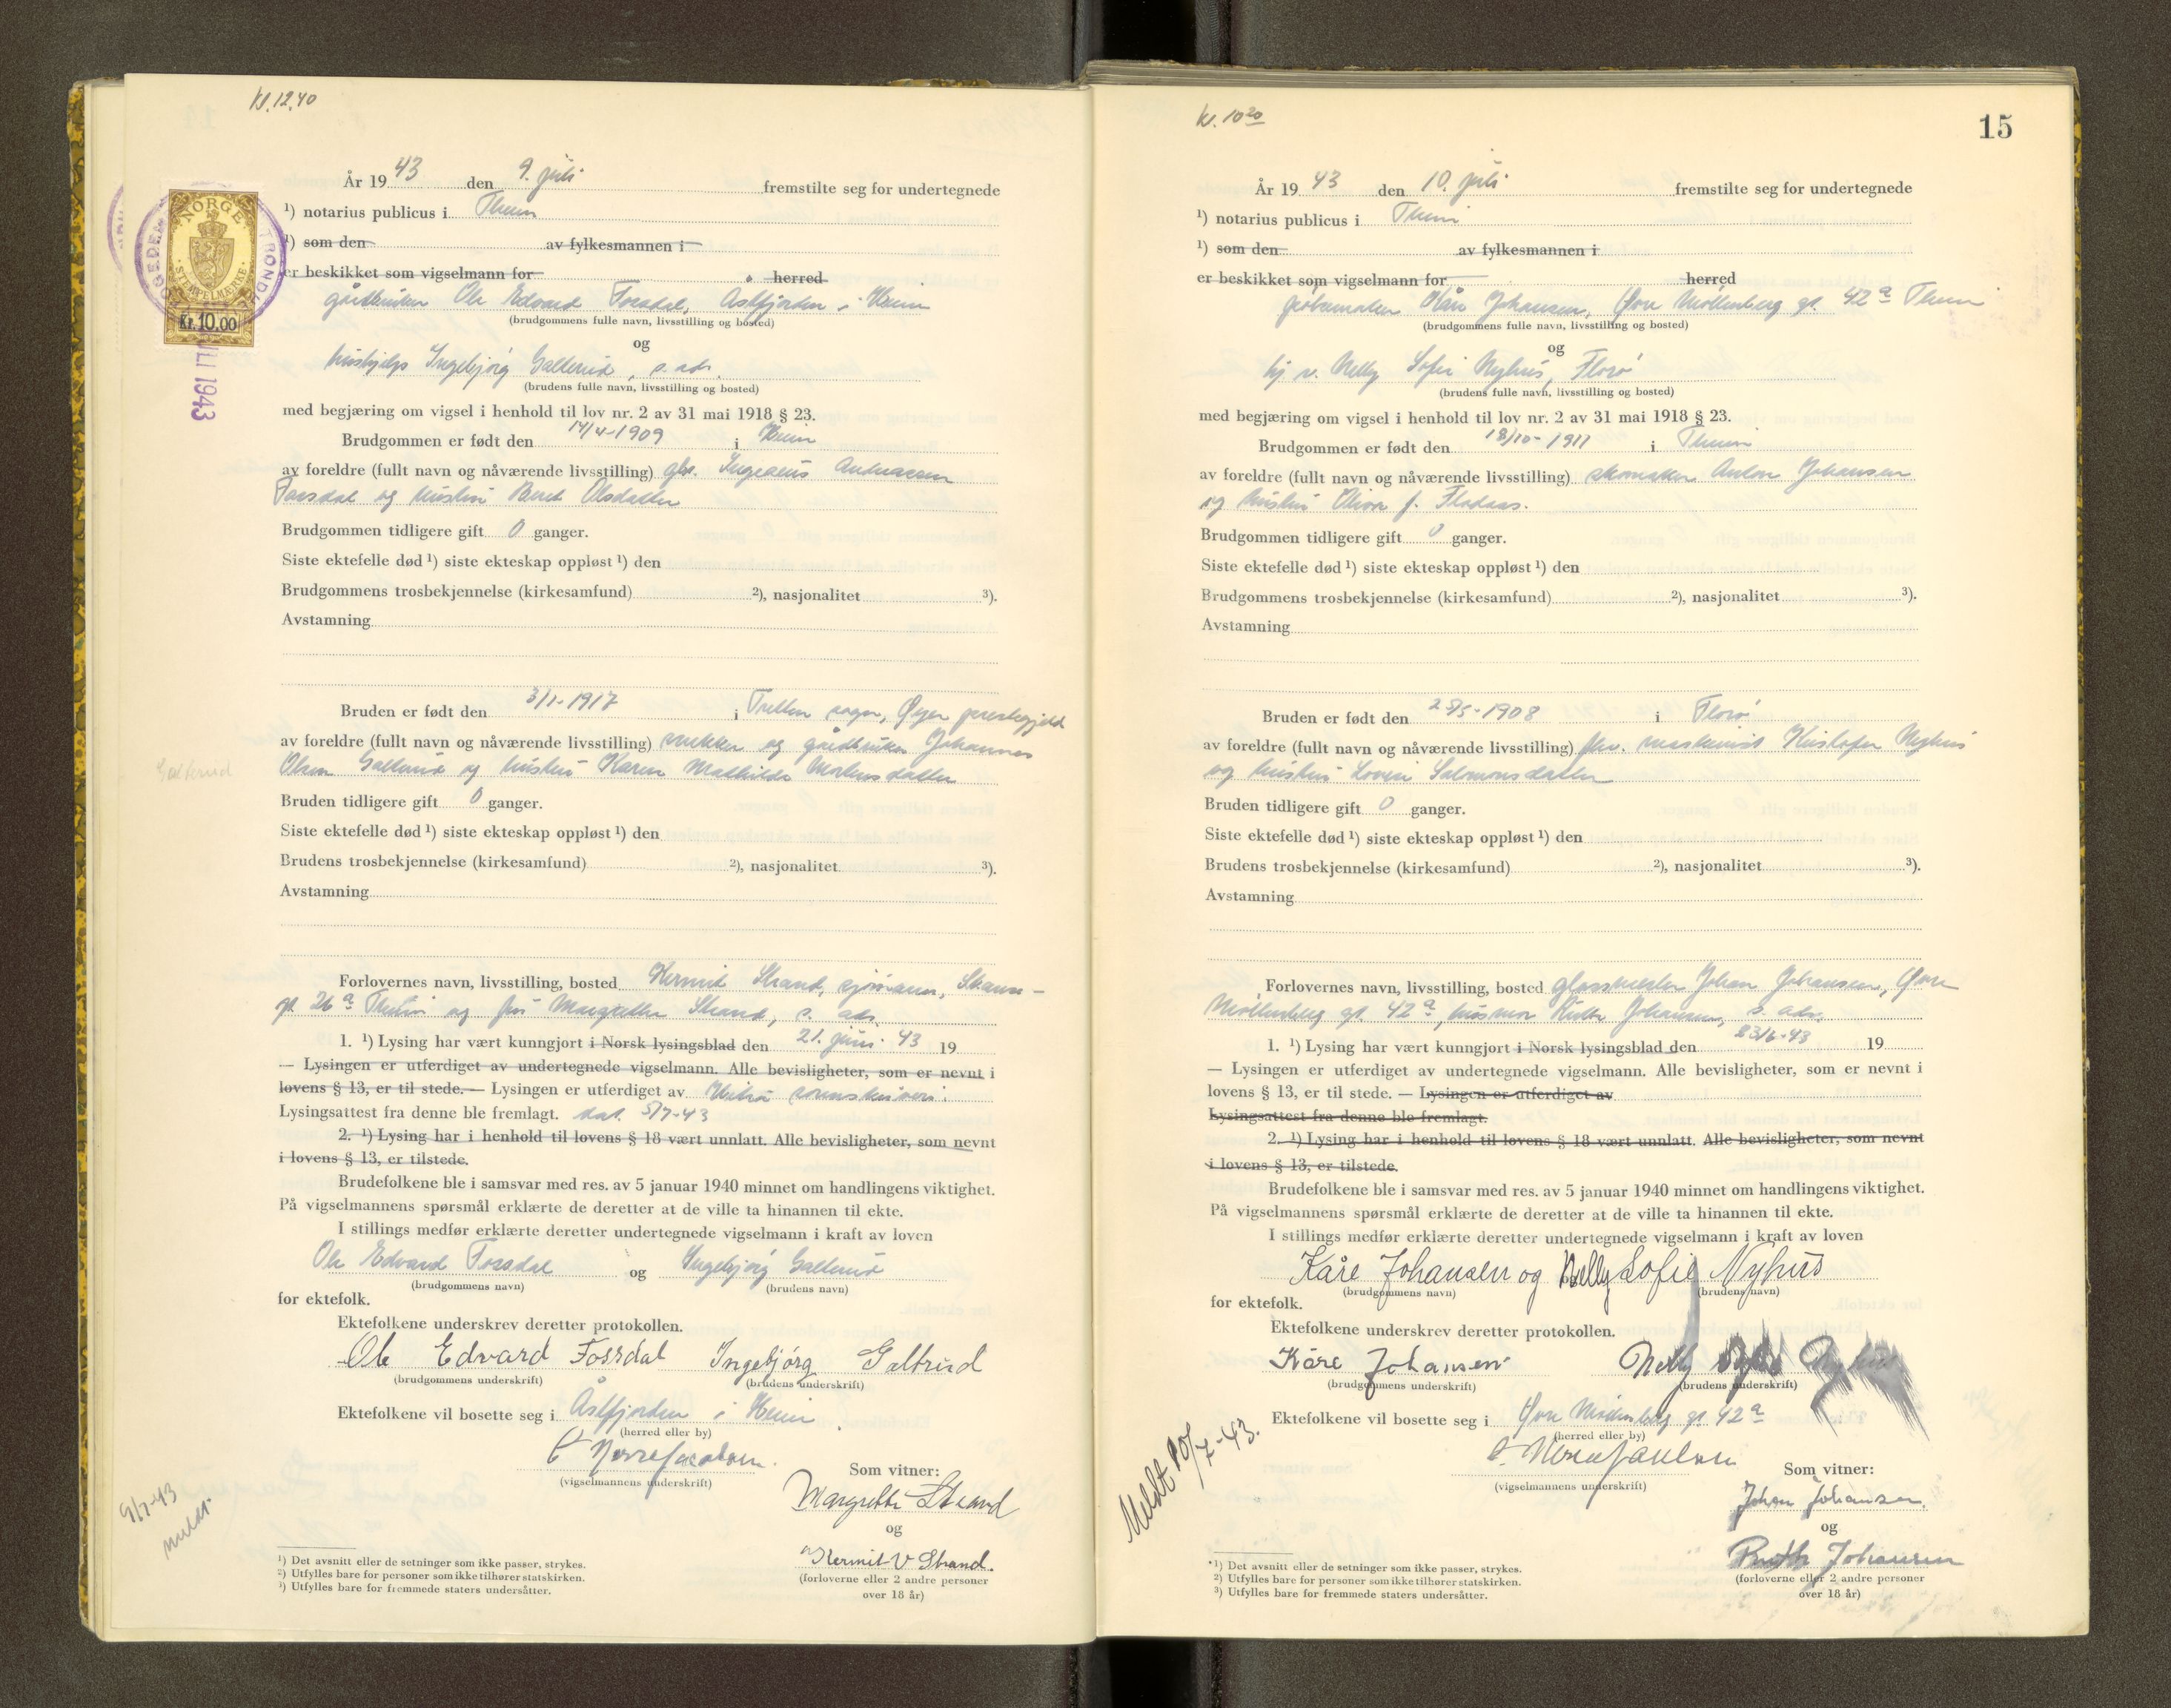 Kl. 12.40
År 1943 den 9. juli fremstilte seg for undertegnede
¹) notarius publicus i Thrm
¹) som den av fylkesmannen i
er beskikket som vigselmann for herred
gårdbruker Ole Edvard Fossdal, Åstfjorden i Hemn
(brudgommens fulle navn, livsstilling og bosted)
og
hushjelp Ingebjørg Galterud, s. adr.
(brudens fulle navn, livsstilling og bosted)
med begjæring om vigsel i henhold til lov nr. 2 av 31 mai 1918 § 23.
Brudgommen er født den 14/4-1909 i Hemn
av foreldre (fullt navn og nåværende livsstilling) gbr. Ingeluis Andreassen
Fossdal og hustru Beret Olsdatter
Brudgommen tidligere gift 0 ganger.
Siste ektefelle død ¹) siste ekteskap oppløst ¹) den
Brudgommens trosbekjennelse (kirkesamfund) ²), nasjonalitet ³).
Avstamning
Bruden er født den 3/1-1917 i Tretten sogn, Øyer prestegjeld
av foreldre (fullt navn og nåværende livsstilling) snekker og gårdbruker Johannes
Galterud
Olsen Galterud og hustru Karen Mathilde Mortensdatter
Bruden tidligere gift 0 ganger.
Siste ektefelle død ¹) siste ekteskap oppløst ¹) den
Brudens trosbekjennelse (kirkesamfund) ²), nasjonalitet ³).
Avstamning
Forlovernes navn, livsstilling, bosted Kermit Strand, sjømann, Skanse-
gt. 26 a Thrm og fru Margrethe Strand, s. adr.
1. ¹) Lysing har vært kunngjort i Norsk lysingsblad den 21. juni 43 19
— Lysingen er utferdiget av undertegnede vigselmann. Alle bevisligheter, som er nevnt i
lovens § 13, er til stede. — Lysingen er utferdiget av Hitra sorenskriveri.
Lysingsattest fra denne ble fremlagt. dat. 5/7-43
2. ¹) Lysing har i henhold til lovens § 18 vært unnlatt. Alle bevisligheter, som nevnt
i lovens § 13, er tilstede.
Brudefolkene ble i samsvar med res. av 5 januar 1940 minnet om handlingens viktighet.
På vigselmannens spørsmål erklærte de deretter at de ville ta hinannen til ekte.
I stillings medfør erklærte deretter undertegnede vigselmann i kraft av loven
Ole Edvard Fossdal og Ingebjørg Galterud
(brudgommens navn) (brudens navn)
for ektefolk.
Ektefolkene underskrev deretter protokollen.
Ole Edvard Fossdal Ingebjørg Galtrud
(brudgommens underskrift) (brudens underskrift)
Ektefolkene vil bosette seg i Åstfjorden i Hemn
(herred eller by)
(vigselmannens underskrift)
Som vitner:
Margrethe Strand
og
Kermit V Strand.
(forloverne eller 2 andre personer
over 18 år)
9/7-43
meldt.
¹) Det avsnitt eller de setninger som ikke passer, strykes.
²) Utfylles bare for personer som ikke tilhører statskirken.
³) Utfylles bare for fremmede staters undersåtter.
NORGE
STEMPELMERKE
Kr. 10.00
JULI 1943
15
kl. 10 20
År 1943 den 10. juli fremstilte seg for undertegnede
¹) notarius publicus i Thrm
¹) som den av fylkesmannen i
er beskikket som vigselmann for herred
Kåre Johansen, Øvre Møllenberg gt. 42 a Thrm
(brudgommens fulle navn, livsstilling og bosted)
og
Nelly Sofie Nyhus, Florø
(brudens fulle navn, livsstilling og bosted)
med begjæring om vigsel i henhold til lov nr. 2 av 31 mai 1918 § 23.
Brudgommen er født den 18/10-1911 i Thrm
av foreldre (fullt navn og nåværende livsstilling) skomaker Anton Johansen
og hustru f. Flodaas.
Brudgommen tidligere gift 0 ganger.
Siste ektefelle død ¹) siste ekteskap oppløst ¹) den
Brudgommens trosbekjennelse (kirkesamfund) ²), nasjonalitet ³).
Avstamning
Bruden er født den 25/5-1908 i Florø
av foreldre (fullt navn og nåværende livsstilling) fhv. maskinist Kristofer Nyhus
og hustru Lovise Salmonsdatter
Bruden tidligere gift 0 ganger.
Siste ektefelle død ¹) siste ekteskap oppløst ¹) den
Brudens trosbekjennelse (kirkesamfund) ²), nasjonalitet ³).
Avstamning
Forlovernes navn, livsstilling, bosted glassmester Johan Johansen, Øvre
Møllenberg gt. 42 a, husmor Ruth Johansen, s. adr.
1. ¹) Lysing har vært kunngjort i Norsk lysingsblad den 23/6-43 19
— Lysingen er utferdiget av undertegnede vigselmann. Alle bevisligheter, som er nevnt i
lovens § 13, er til stede. — Lysingen er utferdiget av
Lysingsattest fra denne ble fremlagt.
2. ¹) Lysing har i henhold til lovens § 18 vært unnlatt. Alle bevisligheter, som nevnt
i lovens § 13, er tilstede.
Brudefolkene ble i samsvar med res. av 5 januar 1940 minnet om handlingens viktighet.
På vigselmannens spørsmål erklærte de deretter at de ville ta hinannen til ekte.
I stillings medfør erklærte deretter undertegnede vigselmann i kraft av loven
Kåre Johansen og Nelly Sofie Nyhus
(brudgommens navn) (brudens navn)
for ektefolk.
Ektefolkene underskrev deretter protokollen.
Kåre Johansen Nelly Sofie Nyhus
(brudgommens underskrift) (brudens underskrift)
Ektefolkene vil bosette seg i Øvre Møllenberg gt 42 a
(herred eller by)
(vigselmannens underskrift)
Som vitner:
Johan Johansen
og
Ruth Johansen
(forloverne eller 2 andre personer
over 18 år)
Meldt 10/7-43.
¹) Det avsnitt eller de setninger som ikke passer, strykes.
²) Utfylles bare for personer som ikke tilhører statskirken.
³) Utfylles bare for fremmede staters undersåtter.